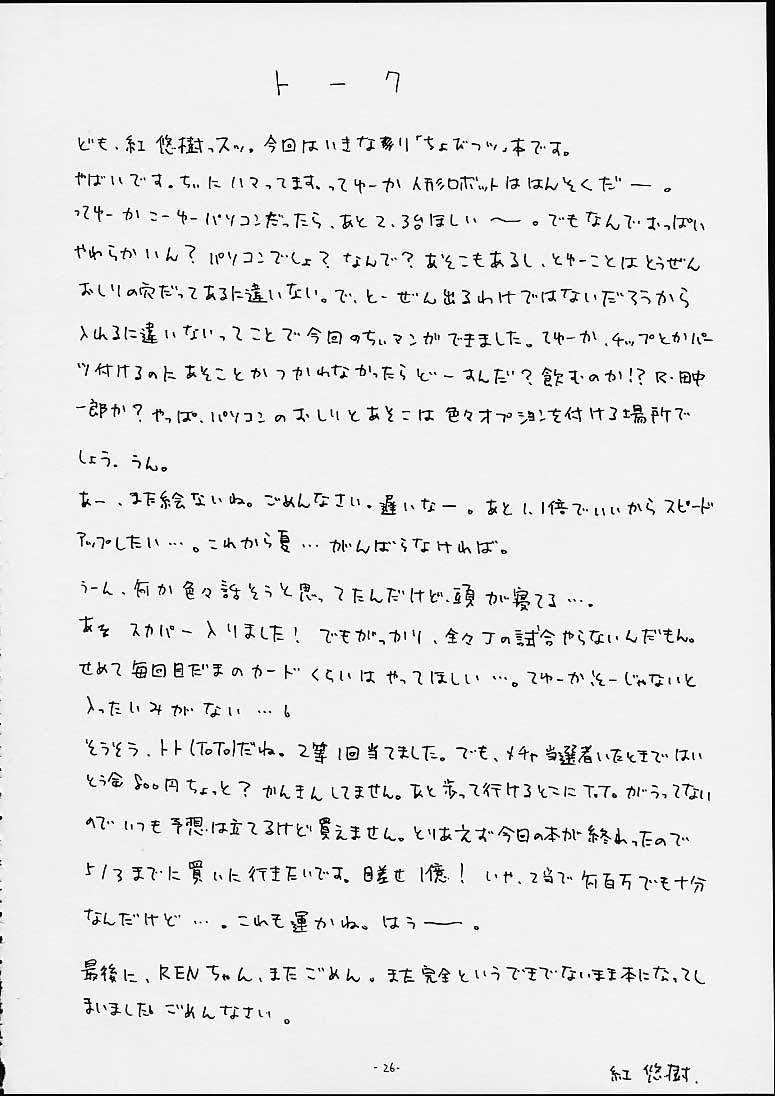 トーク
ども、紅 悠樹っスッ。今回はいきなり「ちょびっツ」本です。
やばいです。ちぃにハマってます、ってゆーか 人形ロボットははんそくだー。
ってゆーか こーゆーパソコンだったら、あと2、3台ほしい〜。でもなんでおっぱい
やわらかいん？ パソコンでしょ？ なんで？ あそこもあるし、とゆーことはとうぜん
おしりの穴だってあるに違いない。で、とーぜん出るわけではないだろうから
入れるに違いないってことで今回のちぃマンガできました。てゆーか、チップとかパー
ツ付けるのにあそことかつかわなかったらどーすんだ？飲むのか!? R・田中
一郎か？やっぱ、パソコンのおしりとあそこは色々オプションを付ける場所で
しょう、うん。
あー、また絵ないね。ごめんなさい。遅いなー。あと1.1倍でいいからスピード
アップしたい…。これから夏…がんばらなければ。
うーん、何か色々話そうと思ってたんだけど、頭が寝てる…。
あそ スカパー入りました！ でもがっかり、全々Jの試合やらないんだもん。
せめて毎回目だまのカードくらいはやってほしい…。てゆーか、そーじゃないと
入ったいみがない…。
そうそう、トト(ToTo)だね。2等1回当てました。でも、メチャ当選者いたときではい
とう金800円ちょっと？かんきんしてません。あと歩って行けるとこにT.T.がうってない
のでいつも予想は立てるけど買えません。とりあえず今回の本が終わったので
5/3までに買いに行きたいです。目差せ1億！ いや、2当で何百万でも十分
なんだけど…。これも運かね。はうー。
最後に、RENちゃん、またごめん。また完全というできでないまま本になってし
まいました。ごめんなさい。
-26-
紅 悠樹.